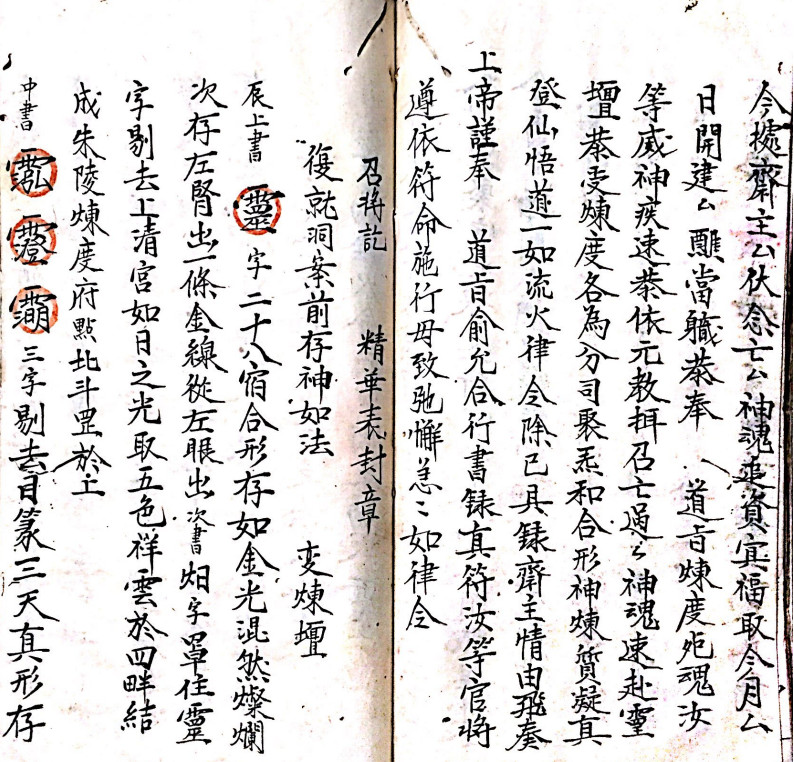 今據齋主厶伏念亡厶神魂追資冥福取今月厶
日開建厶醮當職恭奉　道旨煉度死魂汝
等威神疾速恭依元教拜召亡過厶神魂速赴靈
壇恭受煉度各為分司聚炁和合形神煉質凝真
登仙悟道一如流火律令除已具録齋主情由飛奏
上帝謹奉　道旨俞允合行書録真符汝等官將
遵依符命施行毋致弛懈急〻如律令
召將訖　精華表封章
復就洞案前存神如法　変煉壇
辰上書靈字二十八宿合形存如金光混然燦爛
次存左腎出一條金線從左眼出次書字罩住靈
字剔去上清宮如日之光取五色祥雲於四畔結
成朱陵煉度府點北斗罡於上
中書三字剔去日篆三天真形存